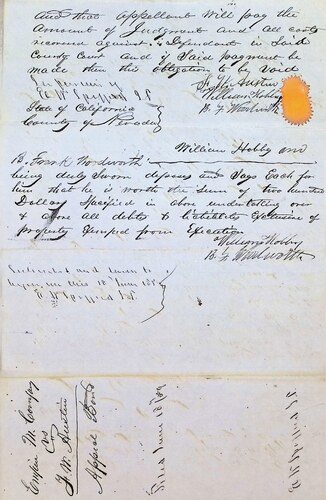 and that appellant will pay the
amount of Judgment and all costs
recovered against Defendant in Said
County Court and if Said payment be
made then this obligation to be Void
J W Austin
William Hobby
B. F. Wordworth
State of California
County of Nevada
William Hobby and
B. Frank Wordworth
being duly Sworn deposes and Says Each for
him that he is worth the Sum of two hundred
Dollars Specified in above undertaking over
& above all debts & liabilities Exclusive of
property Exempt from Execution
William Hobby
B. F. Wordworth
Subscribed and Sworn to
before me this 10 June 185
J P
Empire M. Company
vs
J. W. Austin
Appeal Bond
Filed June 10